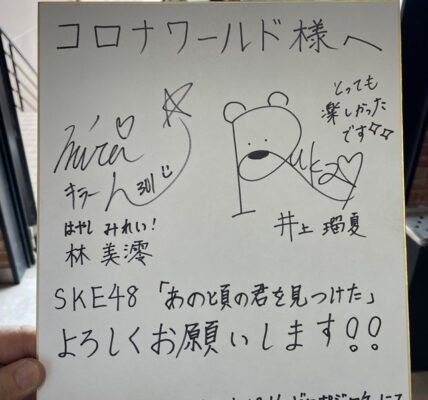 コロナワールド様へ
とっても
楽しかった
です☆☆
mirei♡
キラーん
はやし みれい!
林 美澪
Ruka♡
井上 瑠夏
SKE48「あのと頃の君を見つけた」
よろしくお願いします!!